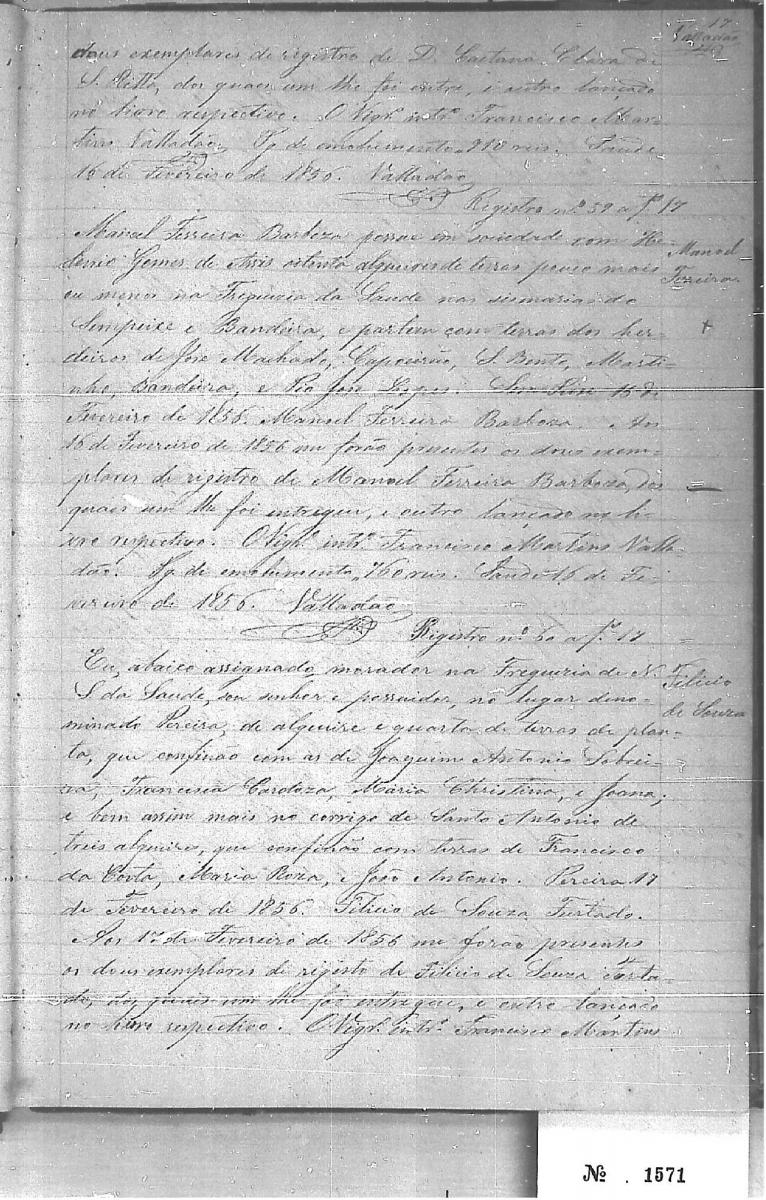 17
Valladão
dous exemplares de registro de D. Caetana Clara de
S. Ritta, dos quaes um lhe foi entre, e outro lançado
no livro respectivo. O Vigrº intrº Francisco Mar-
tins Valladão. Pg. de emolumento 910 reis. Saude
16 de Fevereiro de 1856. Valladão
Registro nº 59 a fº 17
Manoel Ferreira Barboza possue em sociedade com He-
lerio Gomes de Assis oitenta alqueires de terras pouco mais
Manoel
Ferreira
ou menos na Freguezia da Saude nas sismarias do
Sempeixe e Bandeira, e partem com terras dos her-
deiros de José Machado, Capoeirão, S. Bento, Marti-
nho, Bandeira, e Pio José Lopes. 16 de
Fevereiro de 1856. Manoel Ferreira Barboza. Aos
16 de Fevereiro de 1856 me forão presentes os dous exem-
plares de registro de Manoel Ferreira Barboza, dos
quaes um lhe foi entregue, e outro lançado no li-
vro respectivo. O Vigrº intrº Francisco Martins Valla-
dão. Pg. de emolumento 760 reis. Saude 16 de Fe-
vereiro de 1856. Valladão
Registro nº 60 a fº 17
Eu, abaixo assignado, morador na Freguezia de N.
S. da Saude, sou senhor e possuidor, no lugar deno-
Filicio
de Souza
minado Pereira, de alqueire e quarta de terras de plan-
ta, que confinão com as de Joaquim Antonio Sobrei-
ra, Francisca Cardoza, Maria Christina, e Joana;
e bem assim mais no corrigo de Santo Antonio de
treis alqueires, que confinão com terras de Francisco
da Costa, Maria Roza, e João Antonio. Pereira 17
de Fevereiro de 1856. Filicio de Souza Furtado.
Aos 17 de Fevereiro de 1856 me forão presentes
os dous exemplares de registo de Filicio de Souza Furta-
do, dos quaes um lhe foi entregue, e outro lançado
no livro respectivo. O Vigrº intrº Francisco Martins
Nº . 1571